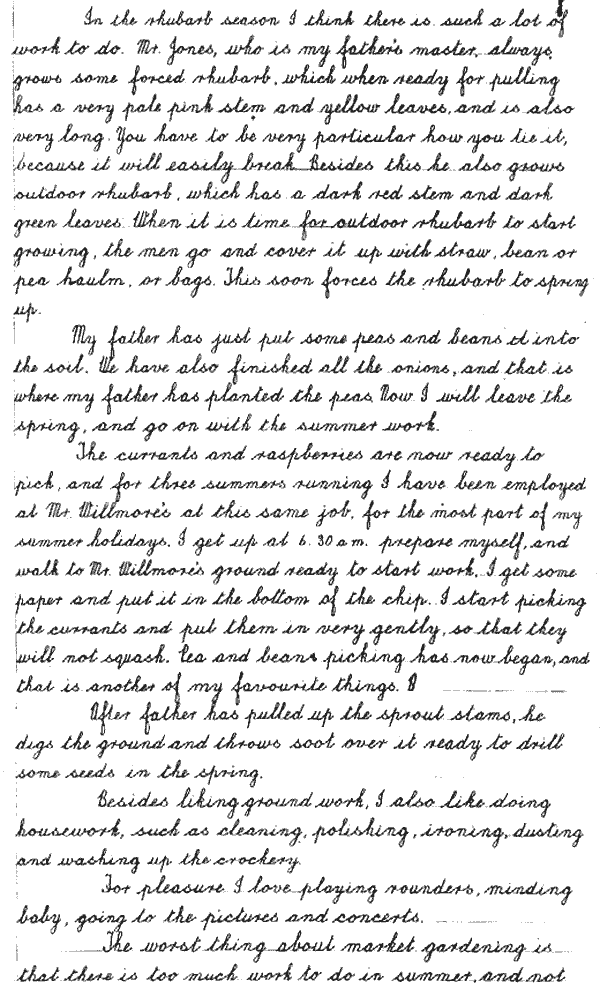 In the rhubarb season I think there is such a lot of
work to do. Mr. Jones, who is my father's master, always
grows some forced rhubarb, which when ready for pulling
has a very pale pink stem and yellow leaves, and is also
very long. You have to be very particular how you tie it,
because it will easily break. Besides this he also grows
outdoor rhubarb, which has a dark red stem and dark
green leaves. When it is time for outdoor rhubarb to start
growing, the men go and cover it up with straw, bean or
pea haulm, or bags. This soon forces the rhubarb to spring
up.
My father has just put some peas and beans into
the soil. We have also finished all the onions, and that is
where my father has planted the peas. Now I will leave the
spring, and go on with the summer work.
The currants and raspberries are now ready to
pick, and for three summers running I have been employed
at Mr. Willmore's at this same job, for the most part of my
summer holidays. I get up at 6.30 a.m. prepare myself, and
walk to Mr. Willmore's ground ready to start work. I get some
paper and put it in the bottom of the chip. I start picking
the currants and put them in very gently, so that they
will not squash. Pea and beans picking has now began, and
that is another of my favourite things.
After father has pulled up the sprout stams, he
digs the ground and throws soot over it ready to drill
some seeds in the spring.
Besides liking ground work, I also like doing
housework, such as cleaning, polishing, ironing, dusting
and washing up the crockery.
For pleasure I love playing rounders, minding
baby, going to the pictures and concerts.
The worst thing about market gardening is
that there is too much work to do in summer, and not